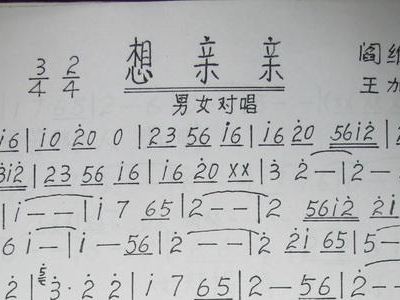 想亲亲
3/4 2/4
阎维
男女对唱
王加
i6|i0 2̇0 0|23 56 i6|i6 2̇0 56i2̇|
3i2̇|23 56 i6|i6 2̇0 XX|3̇ 2̇—|2̇—
|i——|i 7 65|2——|2 56i2̇ 2̇i
6 i—|i — 56|2̇——|2̇ 2̇i 65|5—
2̇|3̇·2̇ 2̇|i 7 65|2—56|2̇—